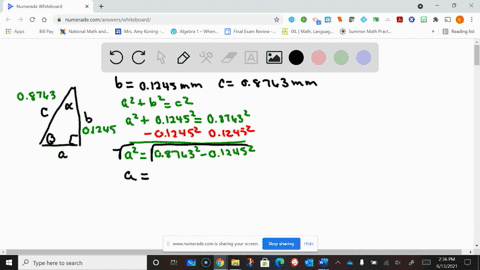 Numerade Whiteboard
numerade.com/answers/whiteboard/
Apps
Bill Pay
National Math and...
Mrs. Amy Koning -...
Algebra 1 - When...
Final Exam Review -...
IXL | Math, Languag...
Summer Math Pract...
Reading list
b = 0.1245 mm c = 0.8763 mm
a² + b² = c²
a² + 0.1245² = 0.8763²
- 0.1245² 0.1245²
√a² = √0.8763² - 0.1245²
a =
0.8763
α
c
b
0.1245
B
a
www.numerade.com is sharing your screen.
Stop sharing
Hide
Type here to search
2:36 PM
6/13/2021